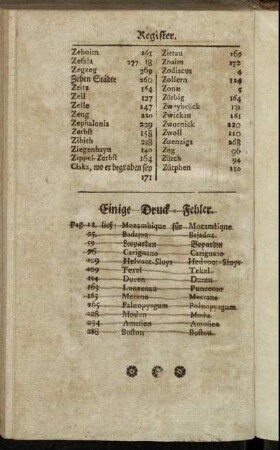 Register.
Zeboim 261
Zefala 277. 18
Zegzeg 269
Zehen Städte 260
Zeitz 164
Zell 127
Zelle 147
Zeng 210
Zephalonia 229
Zerbst 158
Zibith 288
Ziegenhayn 140
Zippel-Zerbst 164
Ciska, wo er begraben sey
171
Zittau 169
Znaim 172
Zodiacus 4
Zollern 124
Zonæ 5
Zörbig 164
Zweybrück 131
Zwickau 161
Zwornick 220
Zwoll 110
Zuenziga 268
Zug 96
Zürch 94
Zütphen 110
Einige Druck-Fehler.
Pag. 12. ließ: Mozambique für Mocambique.
25. Badajoz Bejadoz.
59 Leoparden Boparden
76 Carignano Carignano
109 Helvoet-Sluys Hedvoet-Sluys
109 Texel Tekel.
114 Duren Dureu.
163 Lunzenau Punzenau
183 Metane
165 Palæopyrgum Palæopyrgum.
228 Modon Modu
234 Amasien Amosien
288 Boston Bostou.